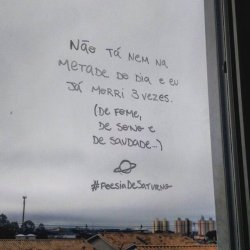 NÃO TÁ NEM NA
METADE DO DIA E EU
JÁ MORRI 3 VEZES.
(DE FOME,
DE SONO E
DE SAUDADE...)
#POESIADESATURNO